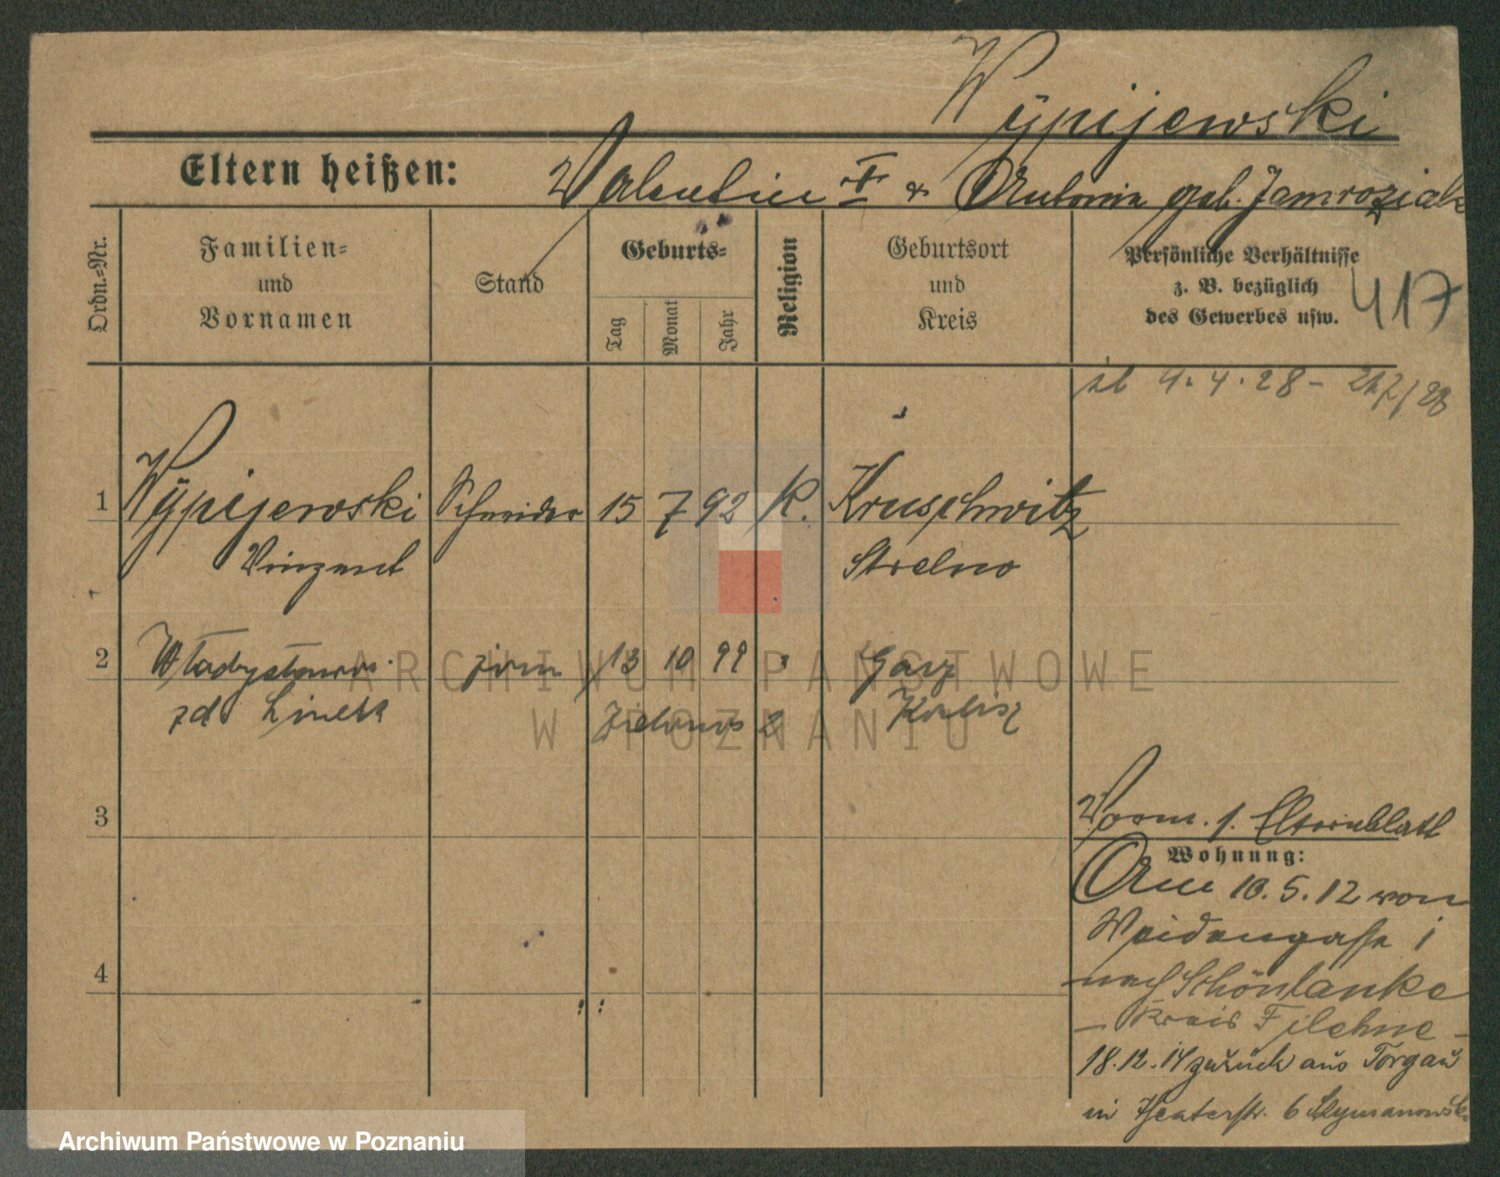 Wypijewski
Eltern heißen: Valentin † & Antonia geb. Jamroziak
Ordn.-Nr.
Familien-
und
Vornamen
Stand
Geburts-
Tag
Monat
Jahr
Religion
Geburtsort
und
Kreis
Persönliche Verhältnisse
z. B. bezüglich
des Gewerbes usw.
417
4.4.28 -
1 Wypijewski Schneider 15 7 92 K. Kruschwitz
Vinzent Strelno
2 Władysława żona 13 10 99
zd
3
Vorm. 1. Elternblatt
Wohnung:
Am 10.5.12 von
Weidengasse 1
nach Schönlanke
- Kreis Filehne -
18.12.14 zurück aus Torgau
in Theaterstr. 6 Szymanowski
4
ARCHIWUM PAŃSTWOWE
W POZNANIU
Archiwum Państwowe w Poznaniu